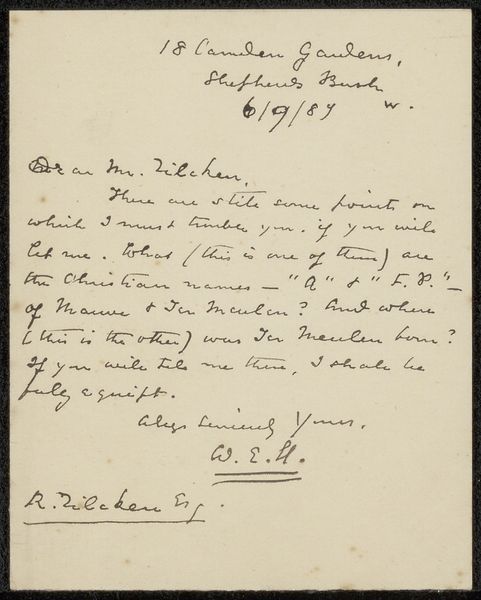 18 Camden Gardens,
Shepherds Bush
W.
6/9/89
Dear Mr. Zilcken,
There are still some points on
which I must trouble you, if you will
let me. What (this is one of them) are
the Christian names — "A" & "F. P." —
of Mauve & Ter Meulen? And where
(this is the other) was Ter Meulen born?
If you will tell me these, I shall be
fully equipt.
Always Sincerely Yours,
W. E. H.
R. Zilcken Esq.